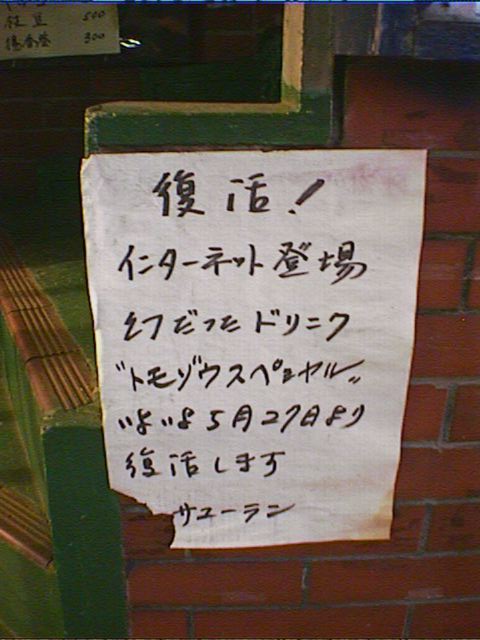 枝豆 500
300
復活!
インターネット登場
幻だったドリンク
"トモゾウスペシャル"
いよいよ5月27日より
復活します
サユーラン